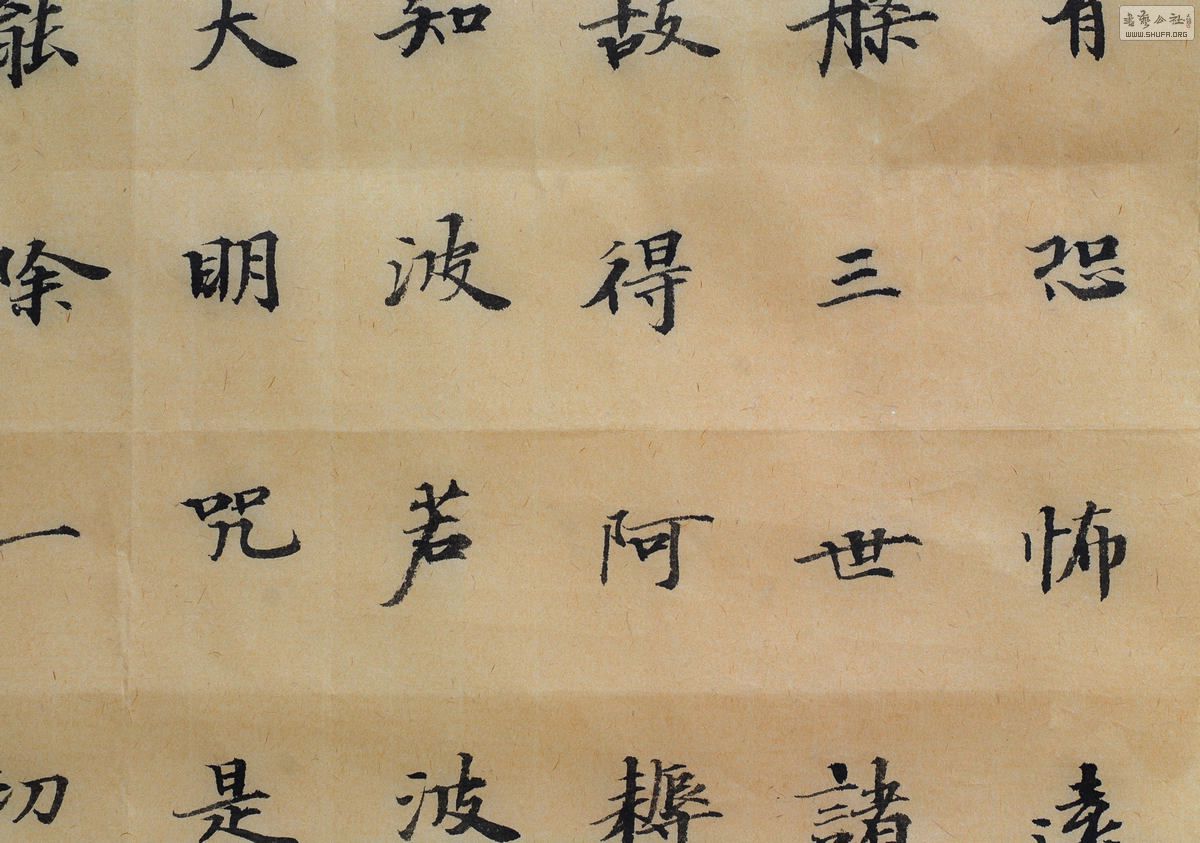 有恐怖遠
槃三世諸
故得阿耨
知波若波
大明咒是
能除一切
书艺公社
WWW.SHUFA.ORG